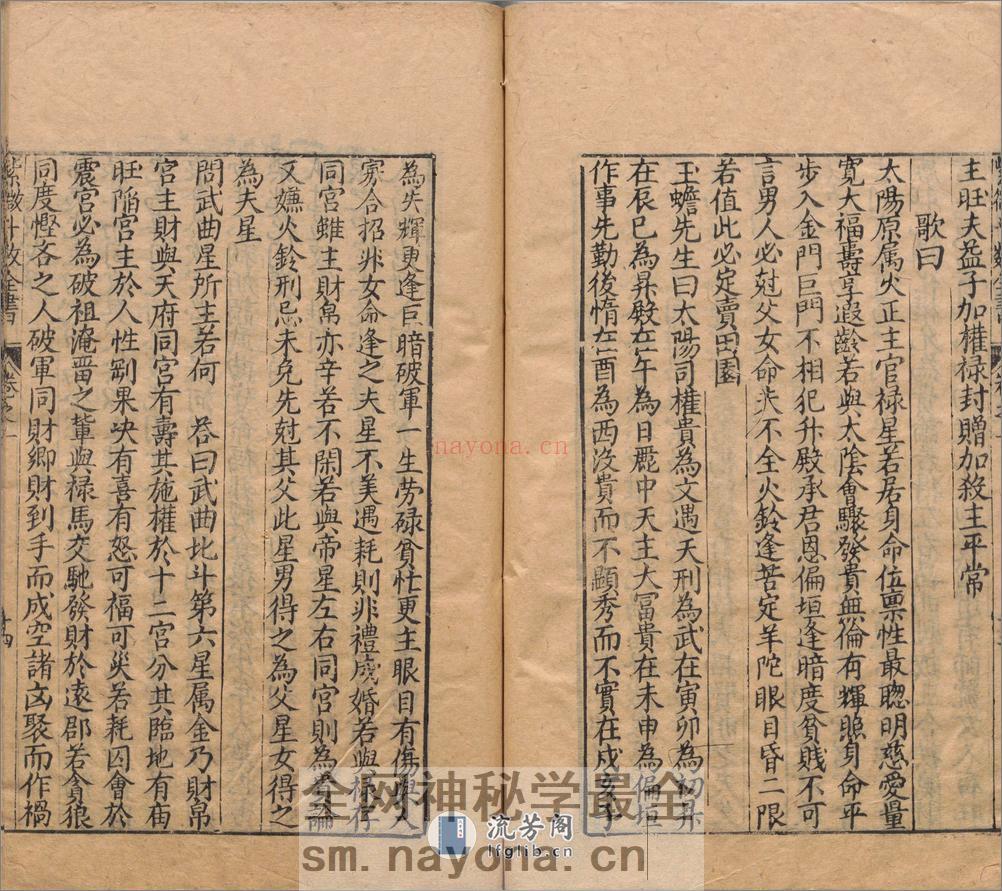 主旺夫益子加權祿封贈加殺主平常
歌曰
太陽原属火正主官禄星若居身命位禀性最聦明慈愛量
寛大福壽享遐齡若與太陰會驟發貴無倫有輝照身命平
步入金門巨門不相犯升殿承君恩偏垣逢暗度貧賤不可
言男人必尅父女命夫不全火鈴逢苦定羊陀眼目昏二限
若值此必定賣田園
玉蟾先生曰太陽司權貴為文遇天刑為武在寅卯為初昇
在辰巳為昇殿在午為日麗中天主大富貴在未申為偏垣
作事先勤後惰在酉為西沒貴而不顯秀而不實在戌亥子
為失輝更逢巨暗破軍一生劳碌貧忙更主眼目有傷與人
寡合招非女命逢之夫星不美遇耗則非禮成婚若與禄存
同宫雖主財帛亦辛苦不閑若與帝星左右同宫則為貴論
又嫌火鈴刑忌未免先尅其父此星男得之為父星女得之
為夫星
問武曲星所主若何 荅曰武曲北斗第六星属金乃財帛
宫主財與天府同宫有壽其施權於十二宫分其臨地有庙
旺陷宫主於人性剛果决有喜有怒可福可災若耗囚會於
震宫必為破祖淹畱之輩與禄馬交馳發財於遠郡若貪狼
同度慳吝之人破軍同財卿財到手而成空諸凶聚而作禍
紫微斗数全書
卷之一
十四
nayona.cn
全网神秘学最全
sm.nayona.cn
流芳阁
lfglib.com